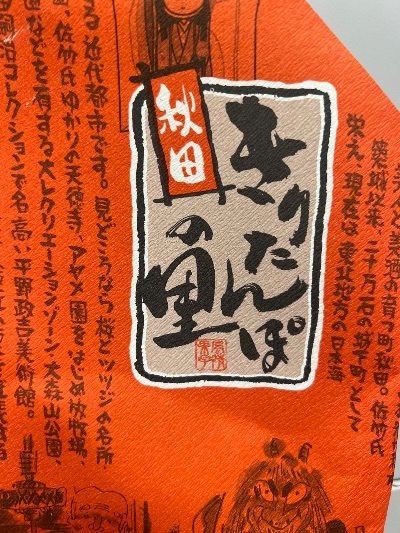 秋田
きりたんぽ
の里
美酒の育つ町秋田。佐竹氏
築城以来、二十万石の城下町として
栄え、現在は東北地方の日本海
する近代都市です。見どころなら桜とツツジの名所
園、佐竹氏ゆかりの天徳寺、アヤメ園をはじめ放牧場、
などを有する大レクリエーションゾーン大森山公園、
コレクションで名高い平野政吉美術館。